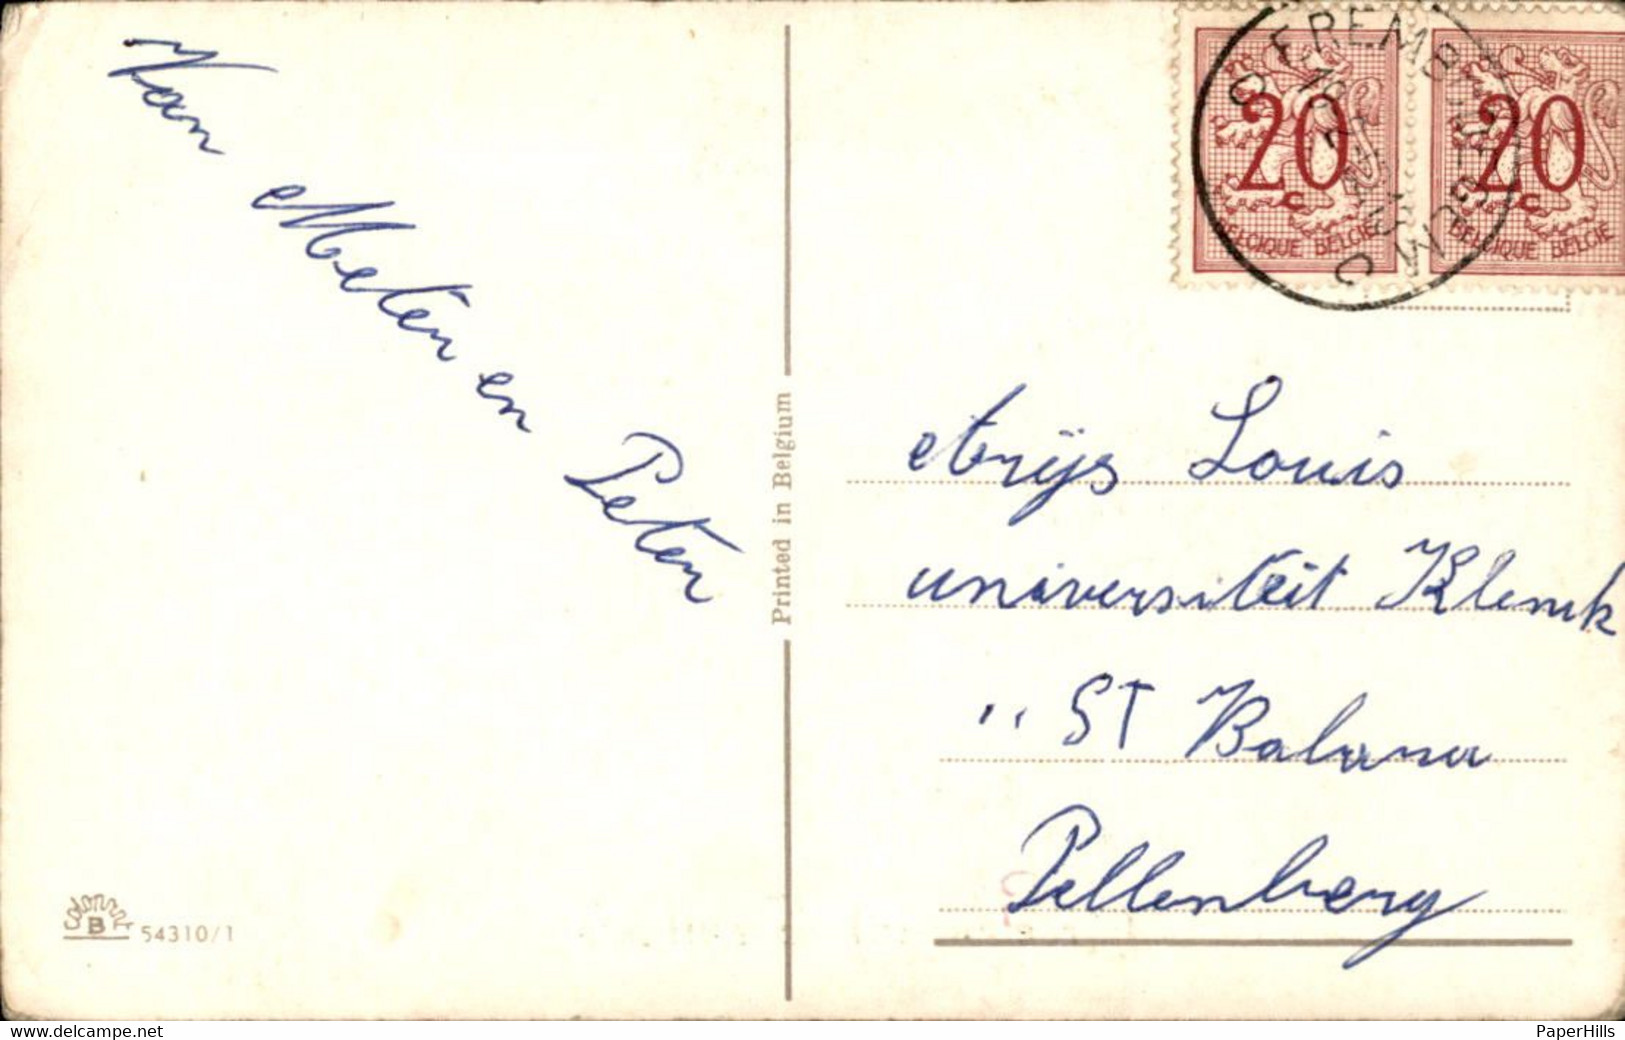 Van Meter en Peter
Printed in Belgium
colorprint
B
54310/1
20
C
BELGIQUE BELGIË
20
C
BELGIQUE BELGIË
Arijs Louis
universiteit Kliniek
" ST Balana
Pellenberg
www.delcampe.net
PaperHills